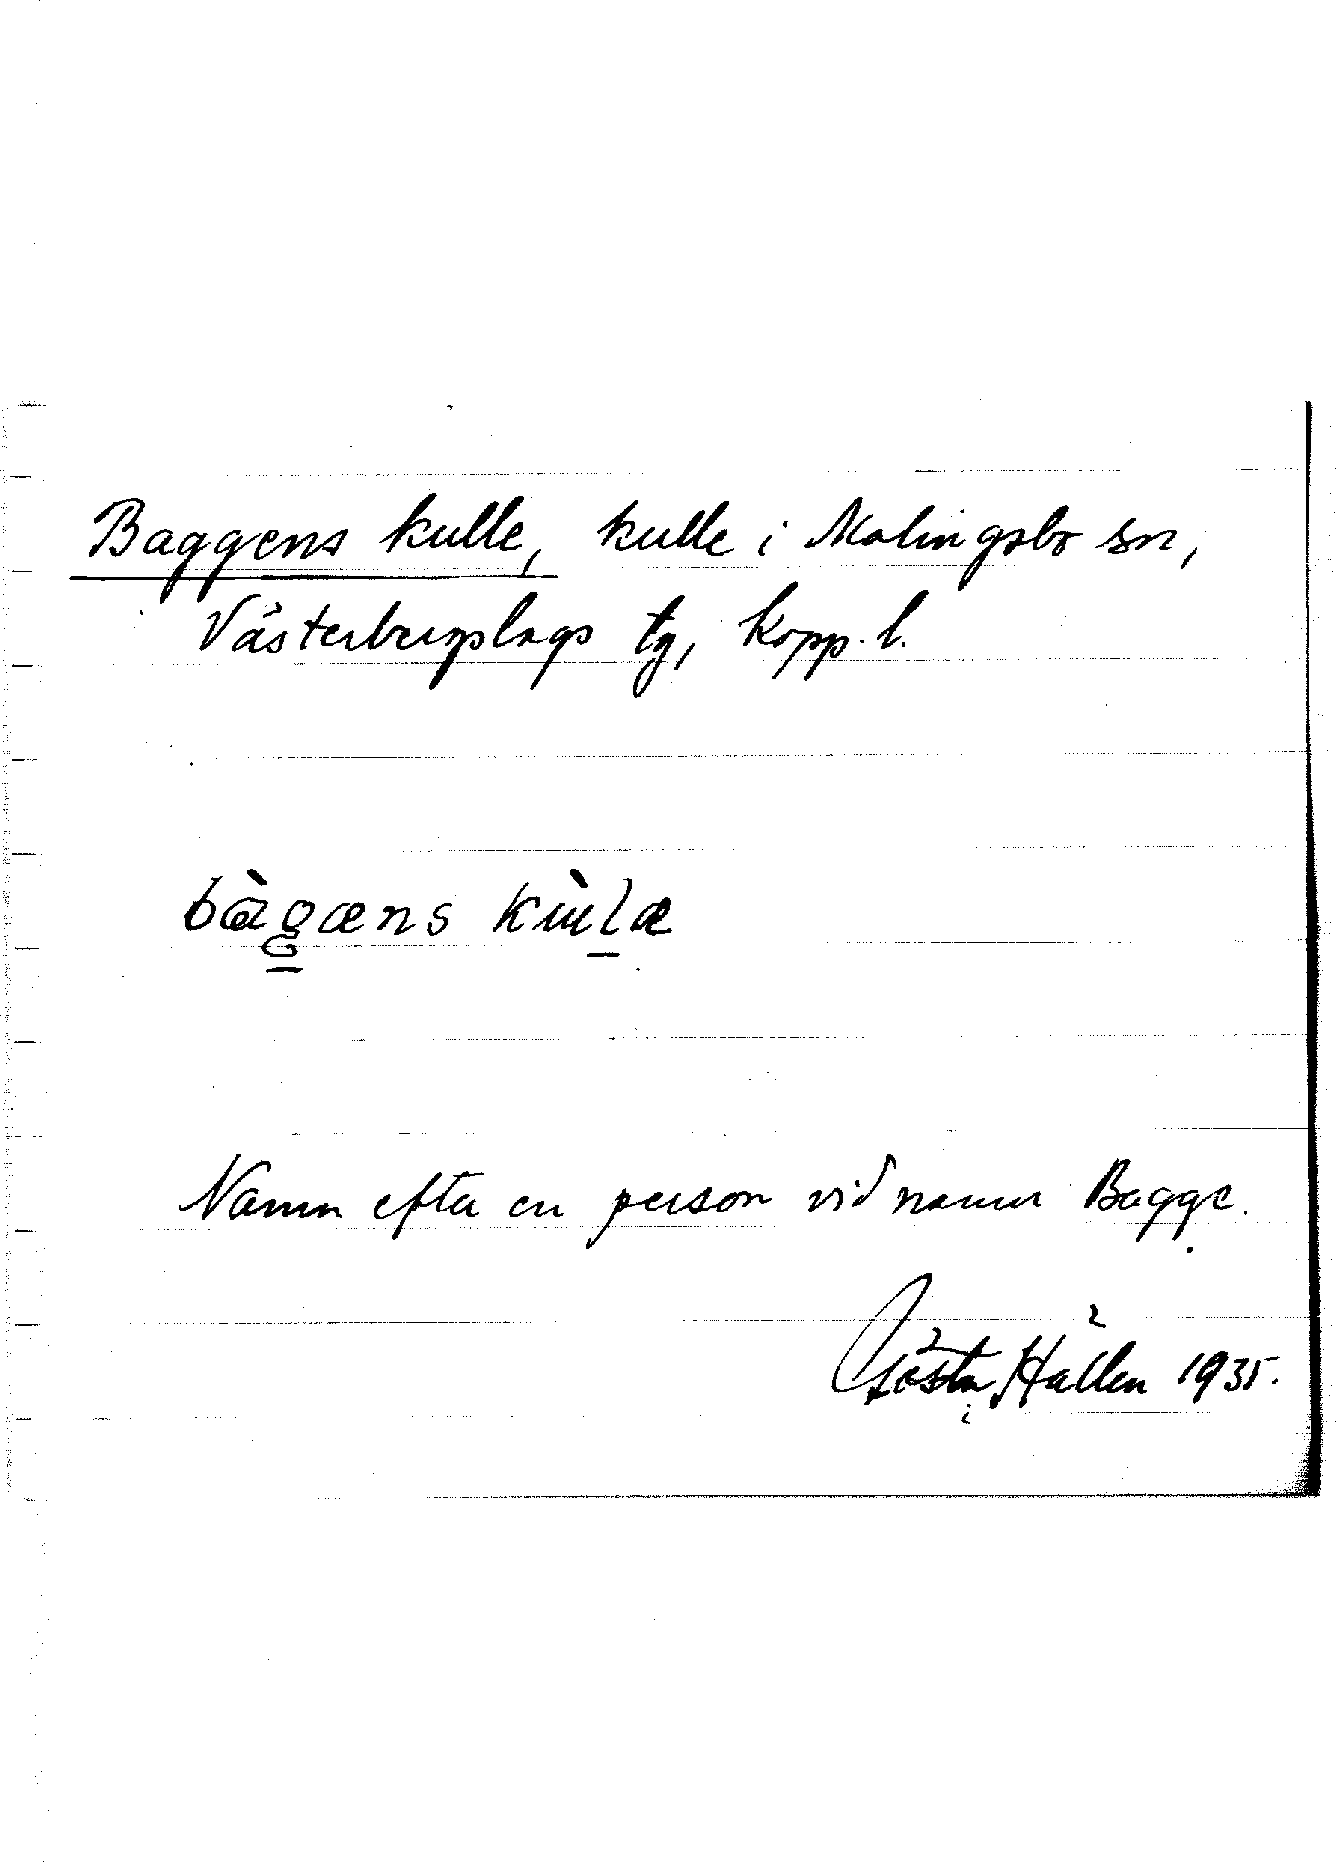 Baggens kulle, kulle i Malingsbo sn,
Västerbergslags tg, Kopp. l.
bàg̲æns kùl̲æ
Namn efter en person vid namn Bagge.
Gösta Hallen 1935.